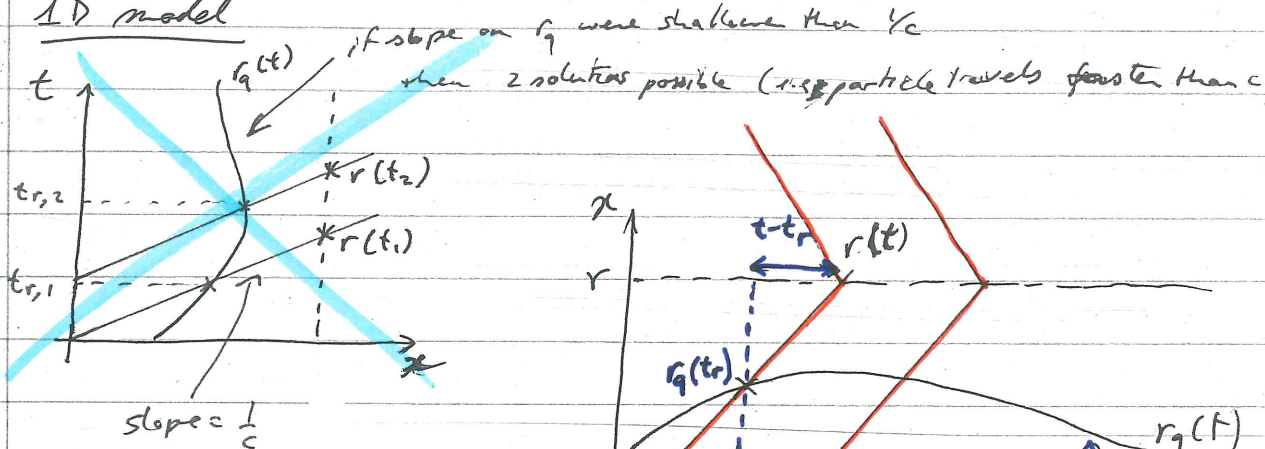 1D model
if slope on rq were shallower than 1/c
then 2 solutions possible (i.e. particle travels faster than c
t
rq(t)
tr,2
r(t2)
r(t1)
tr,1
x
slope = 1/c
x
t-tr
r(t)
r
rq(tr)
rq(t)